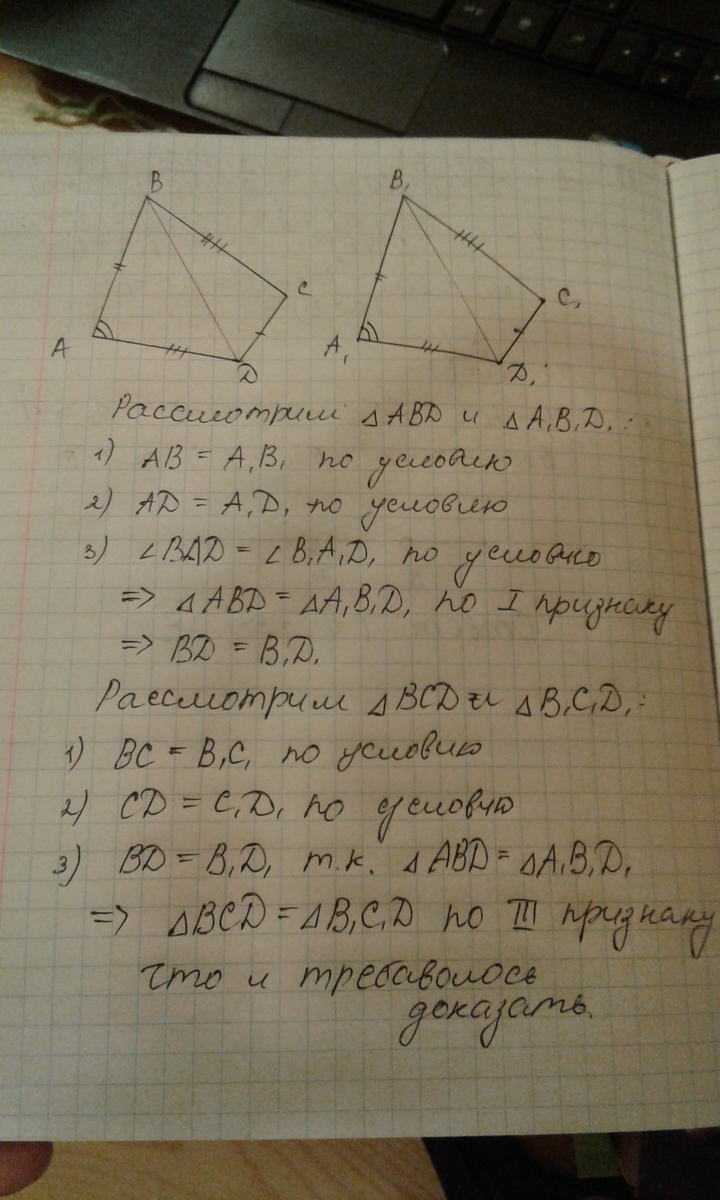 B
C
A
D
B₁
C₁
A₁
D₁
Рассмотрим △ABD и △A₁B₁D₁:
1) AB = A₁B₁ по условию
2) AD = A₁D₁ по условию
3) ∠BAD = ∠B₁A₁D₁ по условию
=> △ABD = △A₁B₁D₁ по I признаку
=> BD = B₁D₁
Рассмотрим △BCD и △B₁C₁D₁:
1) BC = B₁C₁ по условию
2) CD = C₁D₁ по условию
3) BD = B₁D₁ т.к. △ABD = △A₁B₁D₁
=> △BCD = △B₁C₁D по III признаку
что и требаволось
доказать.